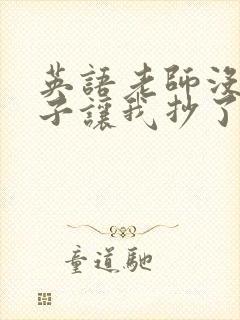 英語老師沒
子讓我抄了
童道馳